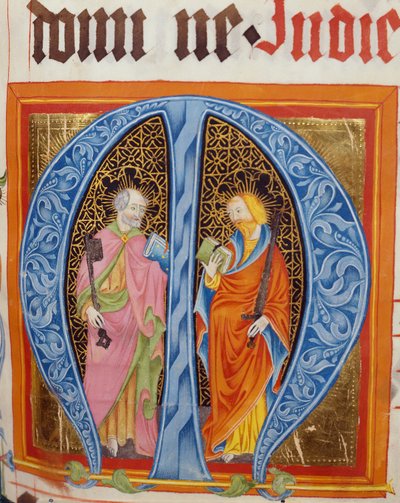 domi ne. Iudic
M